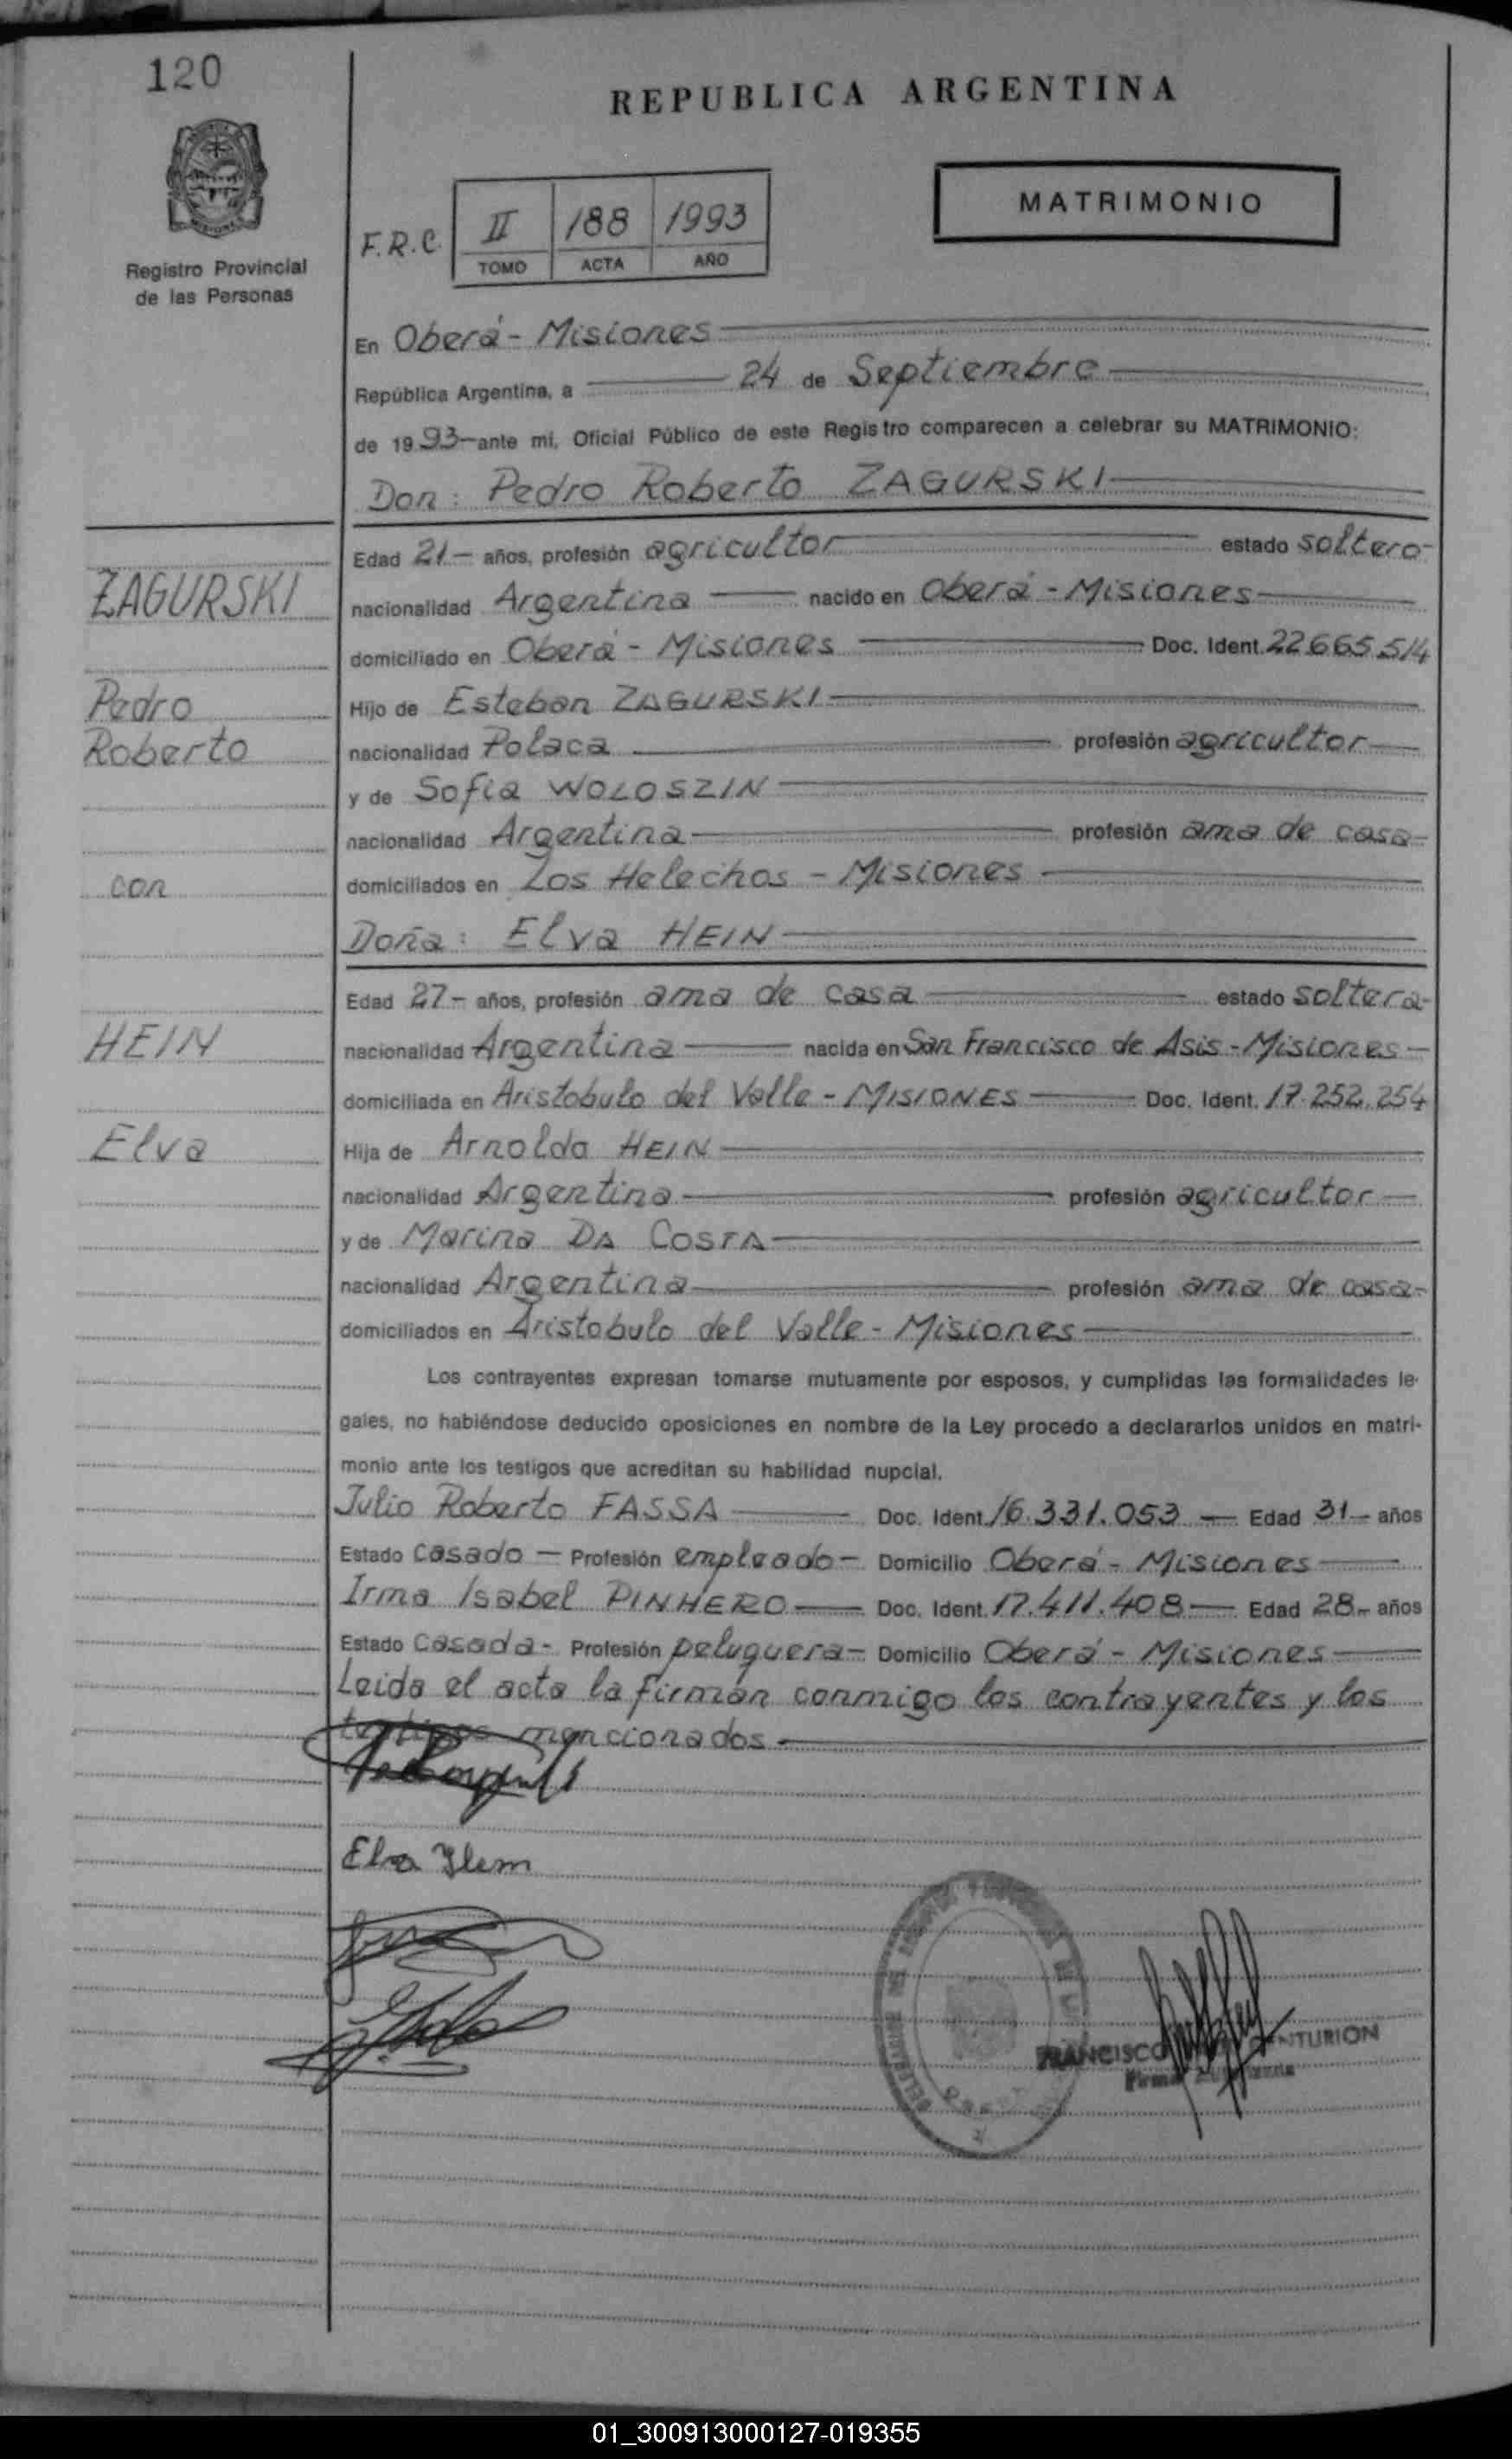 120
REPUBLICA ARGENTINA
Registro Provincial
de las Personas
F.R.C. II 188 1993
TOMO ACTA AÑO
MATRIMONIO
En Oberá - Misiones
República Argentina, a 24 de Septiembre
de 1993 ante mí, Oficial Público de este Registro comparecen a celebrar su MATRIMONIO:
Don: Pedro Roberto ZAGURSKI
Edad 21 - años, profesión agricultor estado soltero
ZAGURSKI
nacionalidad Argentina nacido en Oberá - Misiones
domiciliado en Oberá - Misiones Doc. Ident. 22.665.514
Pedro
Hijo de Esteban ZAGURSKI
Roberto
nacionalidad Polaca profesión agricultor
y de Sofia WOLOSZIN
nacionalidad Argentina profesión ama de casa
con
domiciliados en Los Helechos - Misiones
Doña: Elva HEIN
Edad 27 - años, profesión ama de casa estado soltera
HEIN
nacionalidad Argentina nacida en San Francisco de Asis - Misiones
domiciliada en Aristobulo del Valle - MISIONES Doc. Ident. 17.252.254
Elva
Hija de Arnoldo HEIN
nacionalidad Argentina profesión agricultor
y de Marina DA COSTA
nacionalidad Argentina profesión ama de casa
domiciliados en Aristobulo del Valle - Misiones
Los contrayentes expresan tomarse mutuamente por esposos, y cumplidas las formalidades le-
gales, no habiéndose deducido oposiciones en nombre de la Ley procedo a declararlos unidos en matri-
monio ante los testigos que acreditan su habilidad nupcial.
Julio Roberto FASSA Doc. Ident. 16.331.053 Edad 31 - años
Estado Casado - Profesión empleado - Domicilio Oberá - Misiones
Irma Isabel PINHERO Doc. Ident. 17.411.408 Edad 28 - años
Estado Casada - Profesión peluquera - Domicilio Oberá - Misiones
Leida el acta la firman conmigo los contrayentes y los
testigos mencionados
FRANCISCO CENTURION
01_300913000127-019355